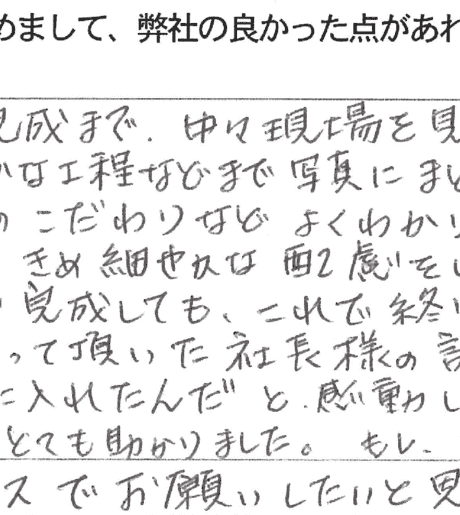 めまして、弊社の良かった点があれ
完成まで、中々現場を見
かな工程などまで写真にまと
のこだわりなど よくわかり
きめ細やかな配慮をし
完成しても、これで終
って頂いた社長様の
に入れたんだ"と、感動し
とても助かりました。もし、
スでお願いしたいと思